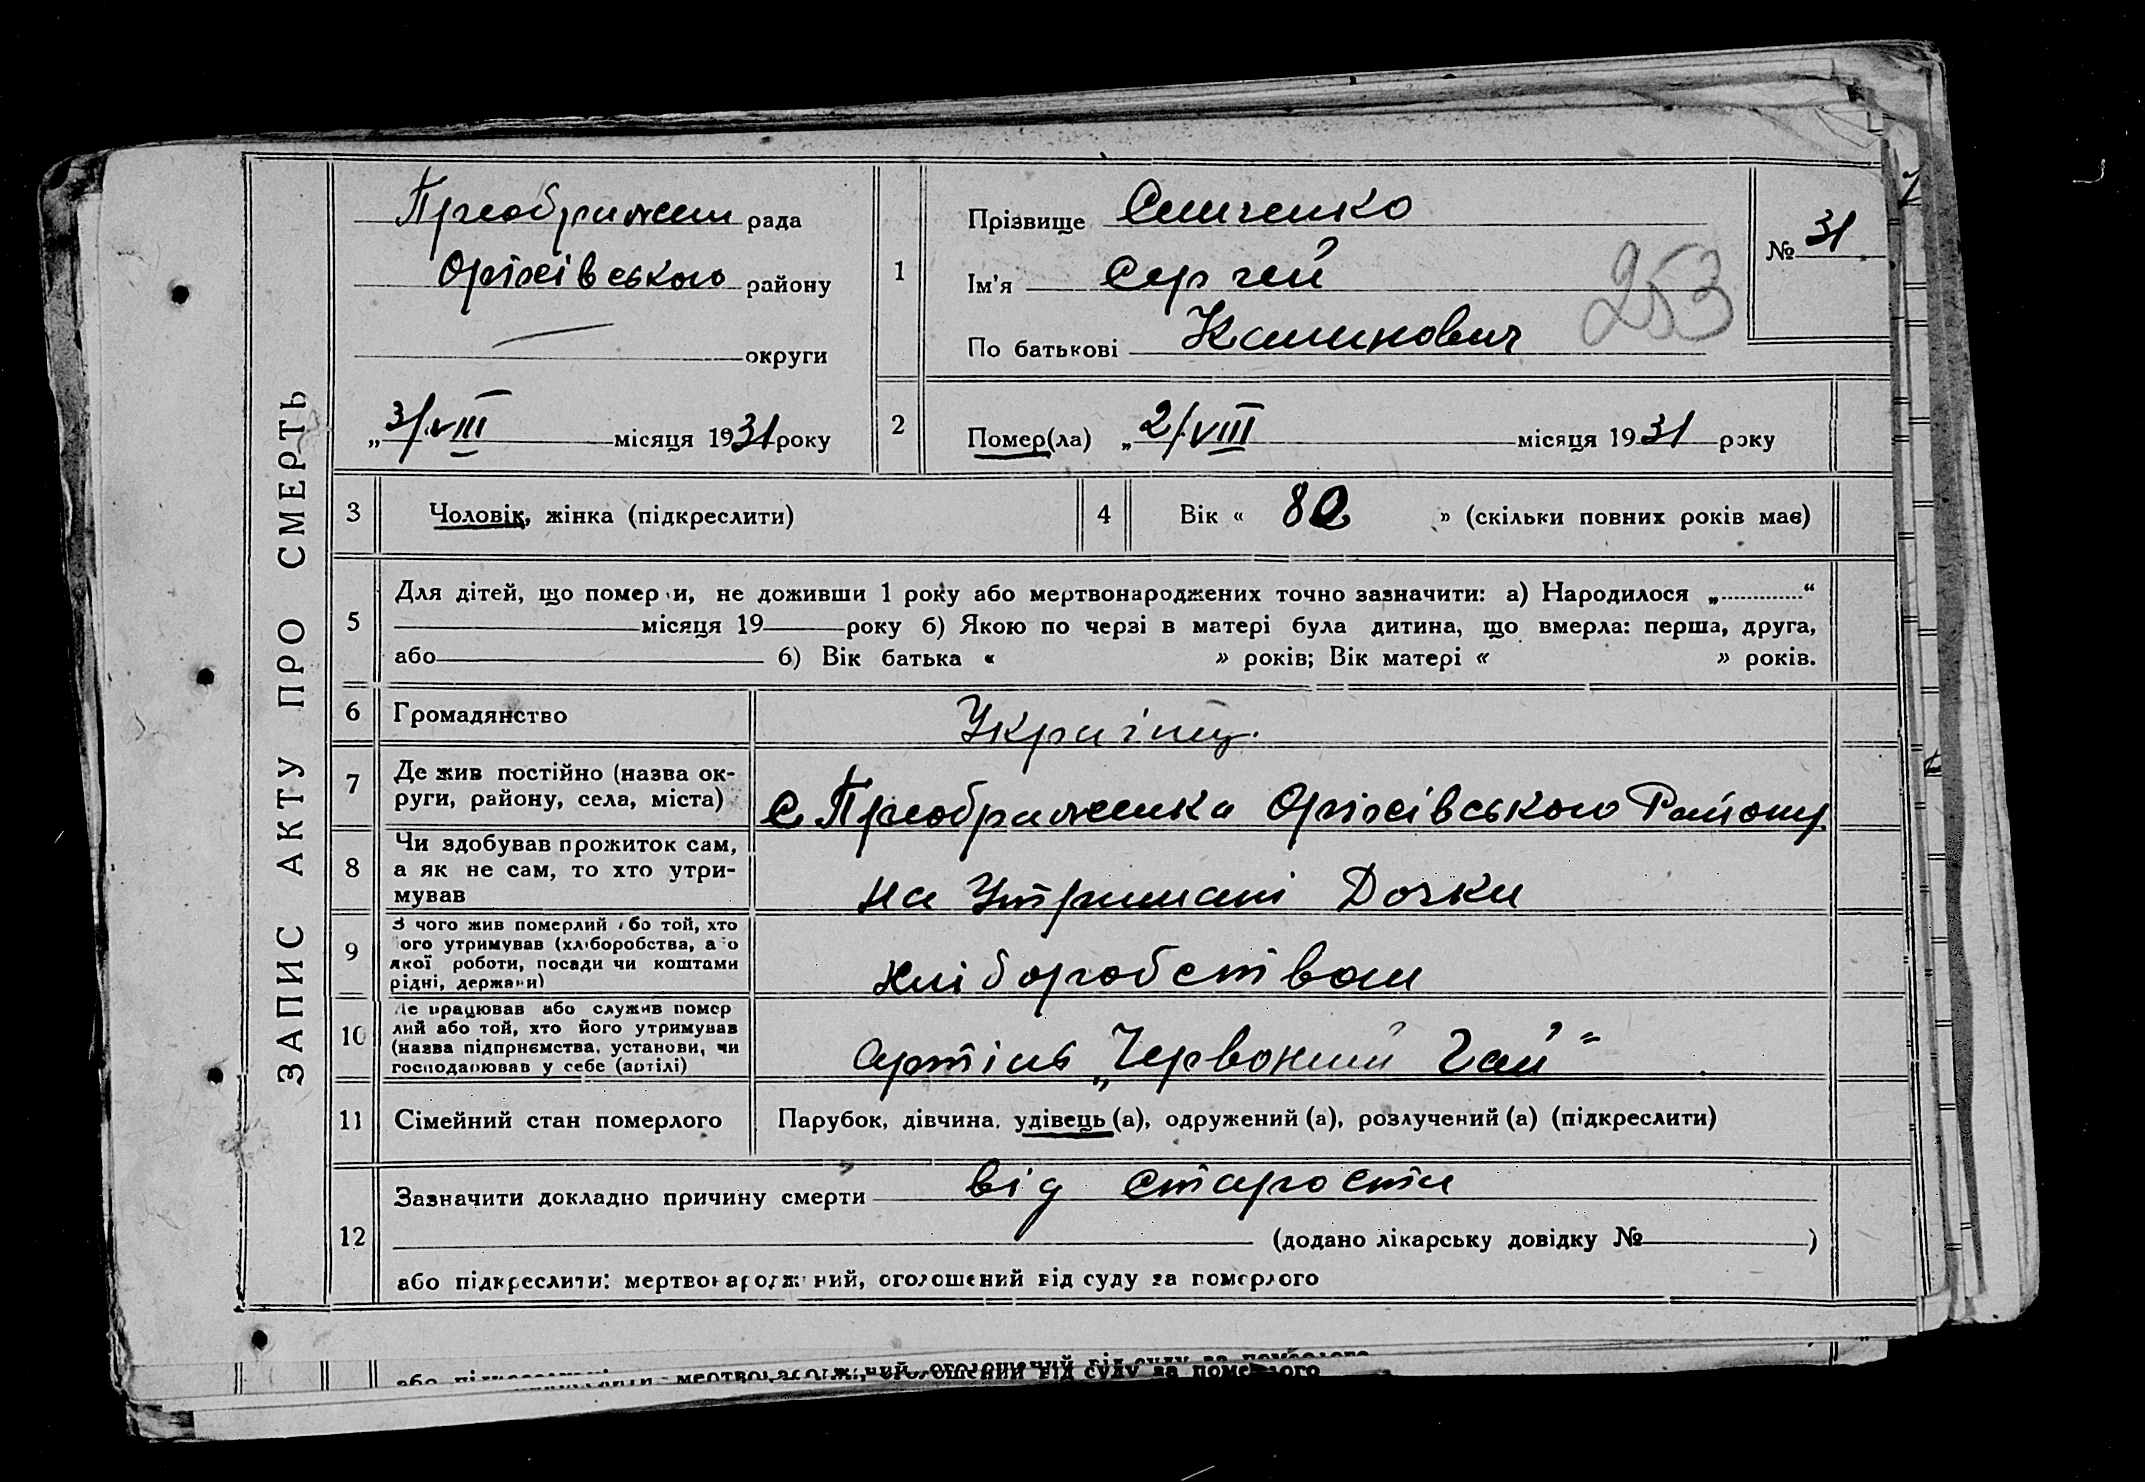 ЗАПИС АКТУ ПРО СМЕРТЬ
Преображен рада
Оріхівського району
округи
„3/VIII місяця 1931 року
1
Прізвище
Ім'я Сергей
По батькові Калинович
253
№ 31
2
Помер(ла) „2/VIII місяця 1931 року
3 Чоловік, жінка (підкреслити)
4 Вік « 80 » (скільки повних років має)
5 Для дітей, що помер и, не доживши 1 року або мертвонароджених точно зазначити: а) Народилося „ “
місяця 19 року б) Якою по черзі в матері була дитина, що вмерла: перша, друга,
або б) Вік батька « » років; Вік матері « » років.
6 Громадянство Українц.
7 Де жив постійно (назва ок-
руги, району, села, міста)
С Преображенка Оріхівського Району
8 Чи здобував прожиток сам,
а як не сам, то хто утри-
мував
на Утримані Дочки
9 З чого жив померлий або той, хто
його утримував (хліборобства, або
якої роботи, посади чи коштами
рідні, держави)
хліборобством
10 Де працював або служив помер
лий або той, хто його утримував
(назва підприємства, установи, чи
господарював у себе (артілі)
Артіль „Червоний Гай“
11 Сімейний стан померлого Парубок, дівчина, удівець (а), одружений (а), розлучений (а) (підкреслити)
12 Зазначити докладно причину смерти від старости
(додано лікарську довідку № )
або підкреслити: мертвонароджений, оголошений від суду за померлого